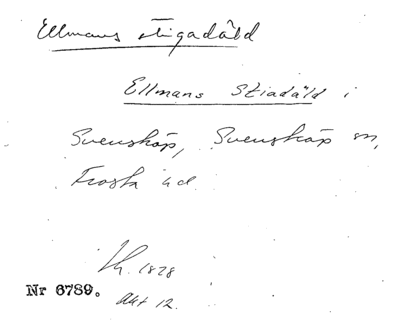 Ellmans stigadäld
Ellmans Stiadäld i
Svenskåp, Svenskåp sn,
Frosta hd
Lh. 1828
Nr 6789. Akt 12.